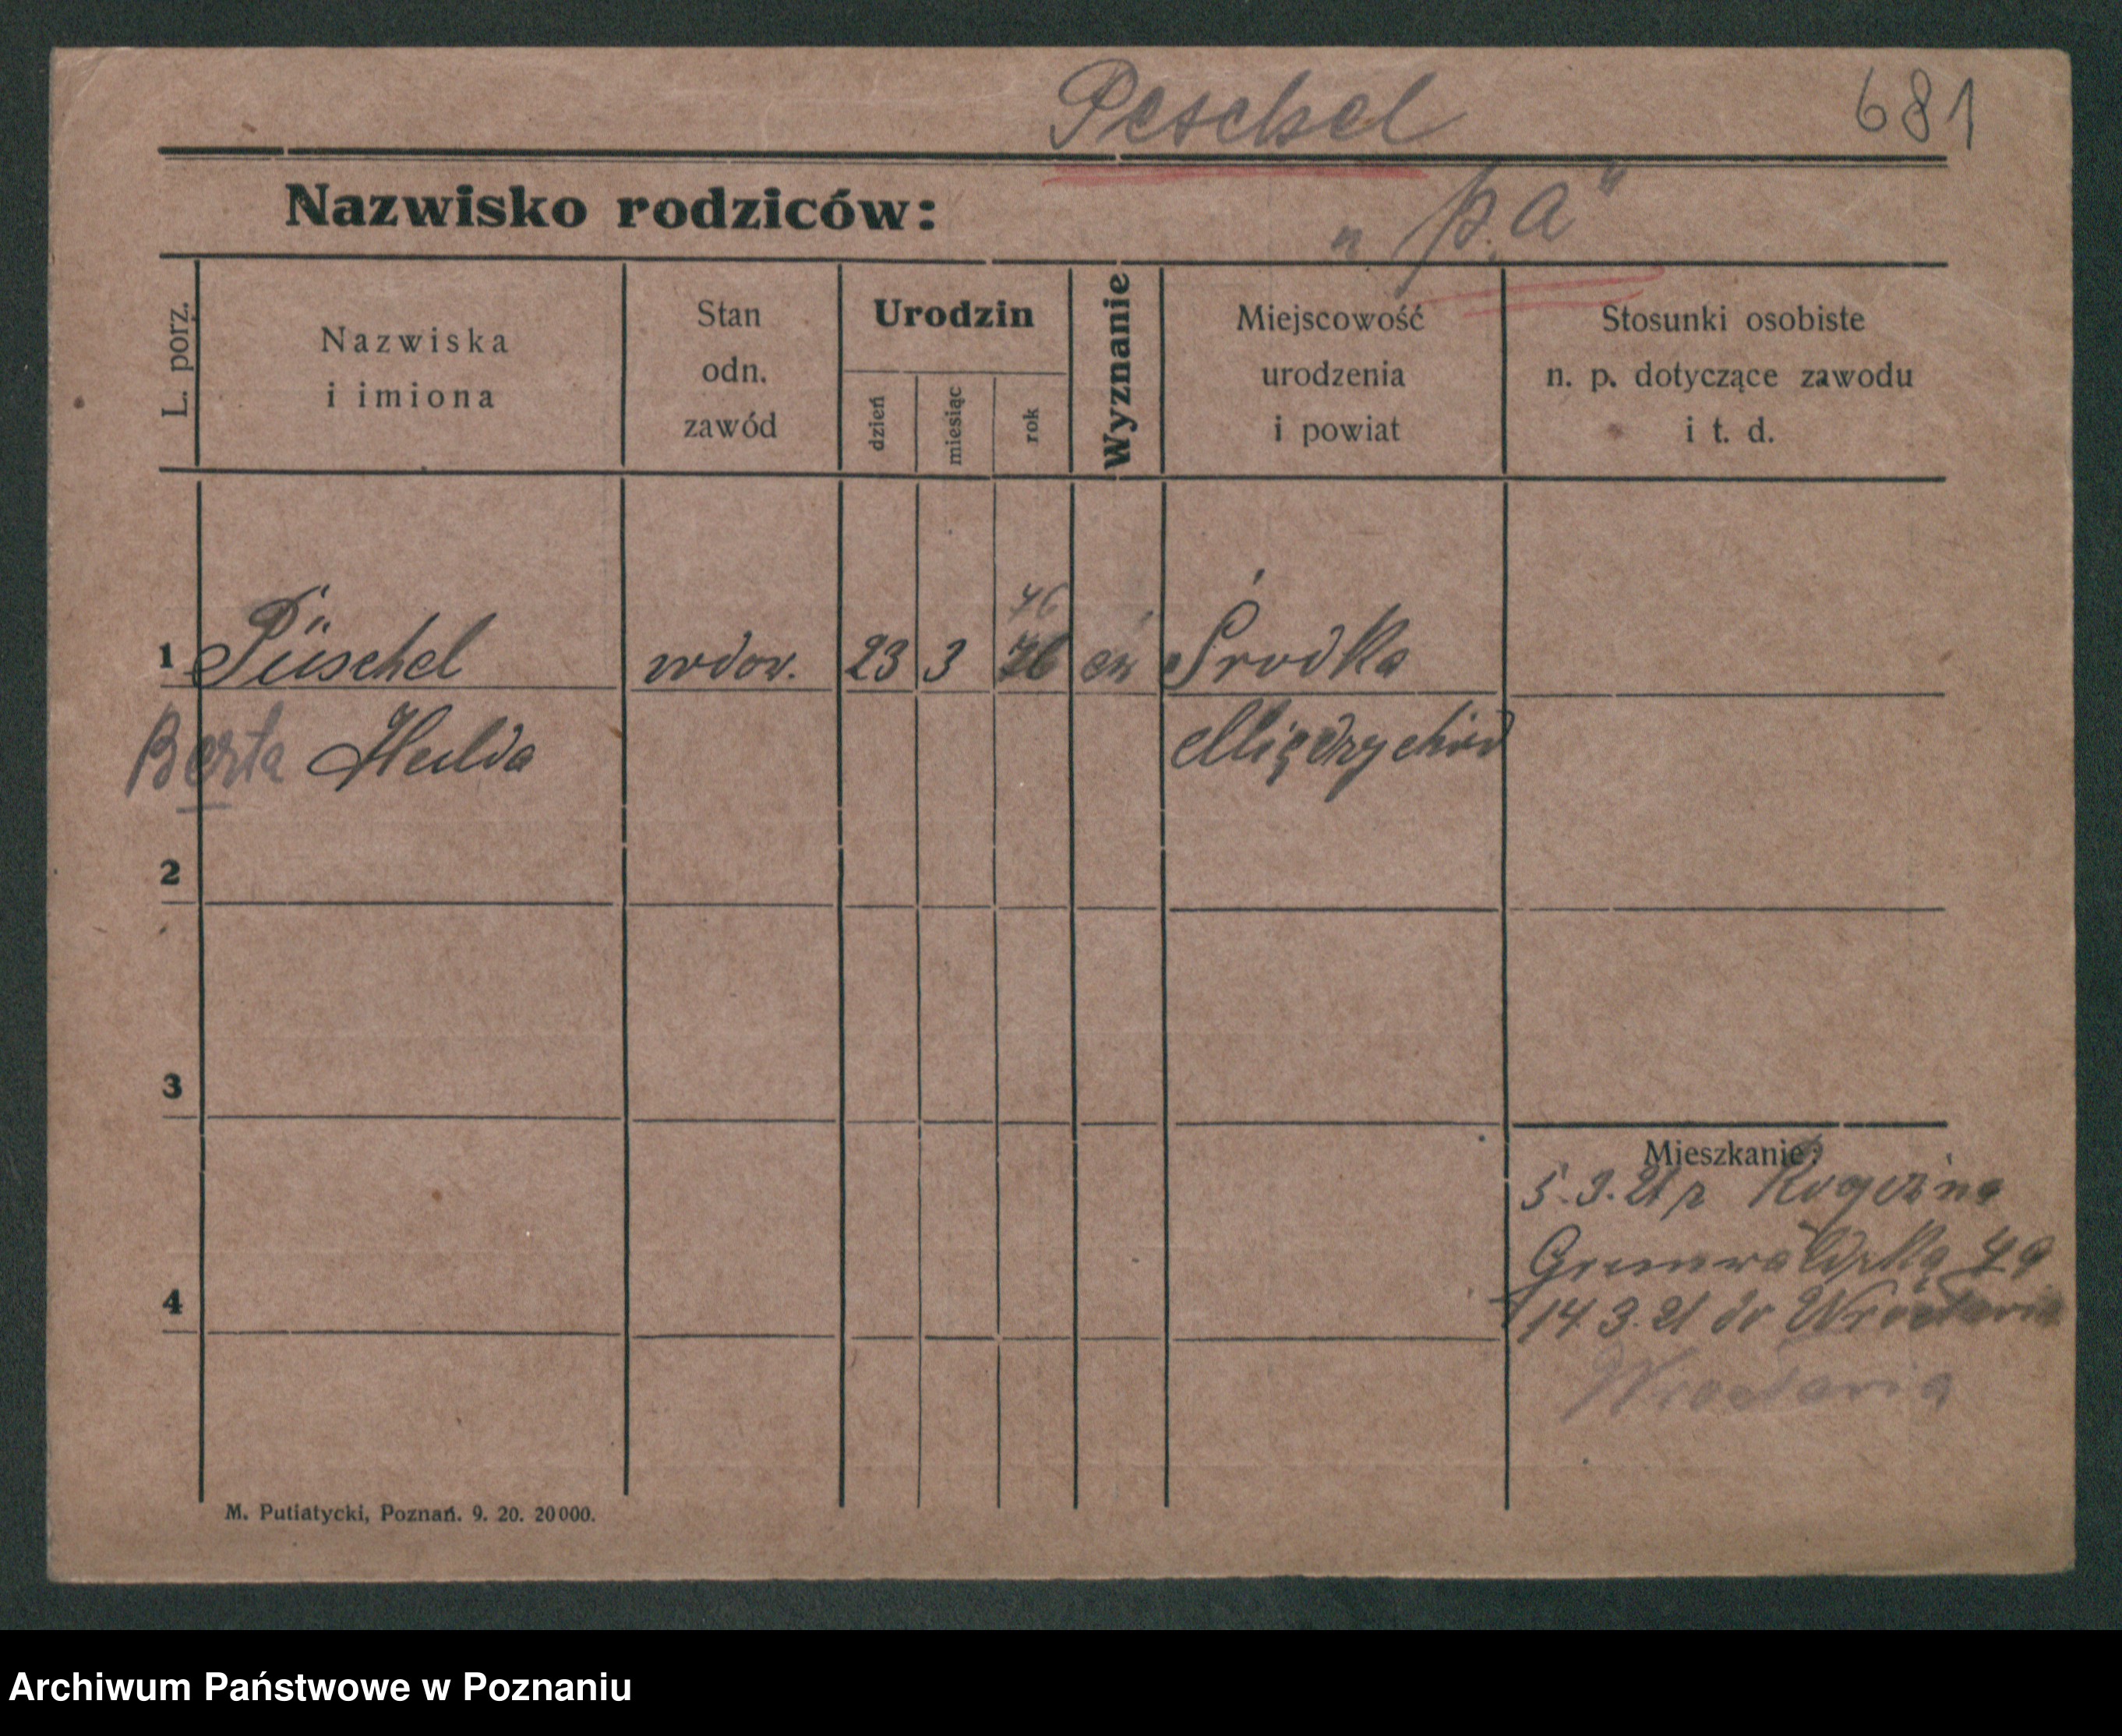 Peschel 681
Nazwisko rodziców: „p. a“
L. porz.
Nazwiska
i imiona
Stan
odn.
zawód
Urodzin
dzień
miesiąc
rok
Wyznanie
Miejscowość
urodzenia
i powiat
Stosunki osobiste
n. p. dotyczące zawodu
i t. d.
76
1 Püschel wdow. 23 3 ew Środka
Berta Hulda Międzychód
2
3
Mieszkanie:
5.3.21 z
Grunwaldzka
4
14.3.21 do Wrocławia
Wrocławia
M. Putiatycki, Poznań. 9. 20. 20000.
Archiwum Państwowe w Poznaniu